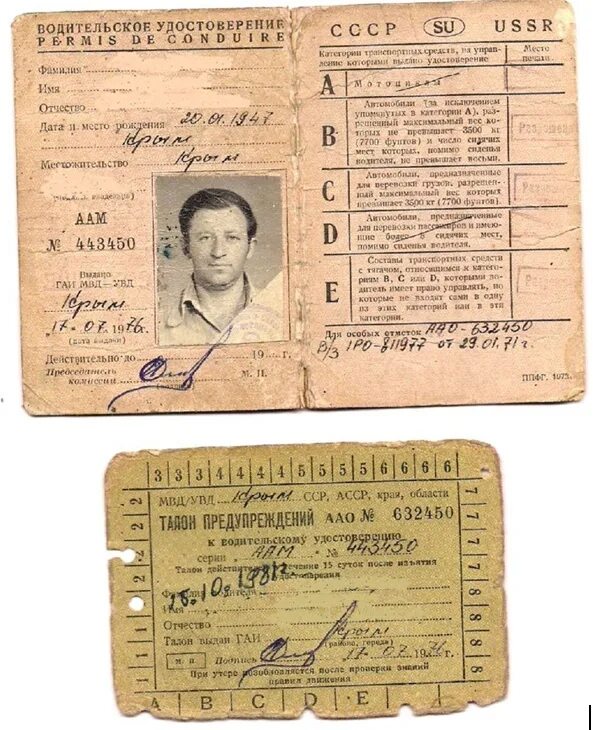 ВОДИТЕЛЬСКОЕ УДОСТОВЕРЕНИЕ
PERMIS DE CONDUIRE
Фамилия
Имя
Отчество
Дата и место рождения 20.01.1947
Крым
Местожительство Крым
ААМ
№ 443450
Выдано
ГАИ МВД—УВД
Крым
„17" 07 1976г.
(дата выдачи)
Действительно до 19 г.
Председатель
комиссии
М. П.
СССР SU USSR
Категории транспортных средств, на управ-
ление которыми выдано удостоверение
Место
печати
A Мотоциклы
B Автомобили (за исключением
упомянутых в категории А), раз-
решенный максимальный вес ко-
торых не превышает 3500 кг
(7700 фунтов) и число сидячих
мест которых, помимо сиденья
водителя, не превышает восьми.
C Автомобили, предназначенные
для перевозки грузов, разрешен-
ный максимальный вес которых
превышает 3500 кг (7700 фунтов).
D Автомобили, предназначенные
для перевозки пассажиров и имею-
щие более 8 сидячих мест,
помимо сиденья водителя.
E Составы транспортных средств
с тягачом, относящимся к катего-
риям B, C или D, которыми во-
дитель имеет право управлять, но
которые не входят сами в одну
из этих категорий или в эти
категории.
Для особых отметок ААО-632450
Р/З 1РО-811977 от 29.01.71г.
ППФГ. 1973.
3 3 3 4 4 4 4 5 5 5 5 6 6 6 6
МВД/УВД Крым ССР, АССР, края, области
ТАЛОН ПРЕДУПРЕЖДЕНИЙ ААО № 632450
к водительскому удостоверению
серии ААМ № 443450
Талон действителен в течение 15 суток после изъятия
удостоверения
18.10.1981г.
Фамилия водителя
Имя
Отчество
Талон выдан ГАИ Крым
(района, города)
м. п. Подпись 17 07 1976 г.
При утере возобновляется после проверки знаний
правил движения
A B C D E
2 2 2 2 1 1 1 1
7 7 7 7 8 8 8 8